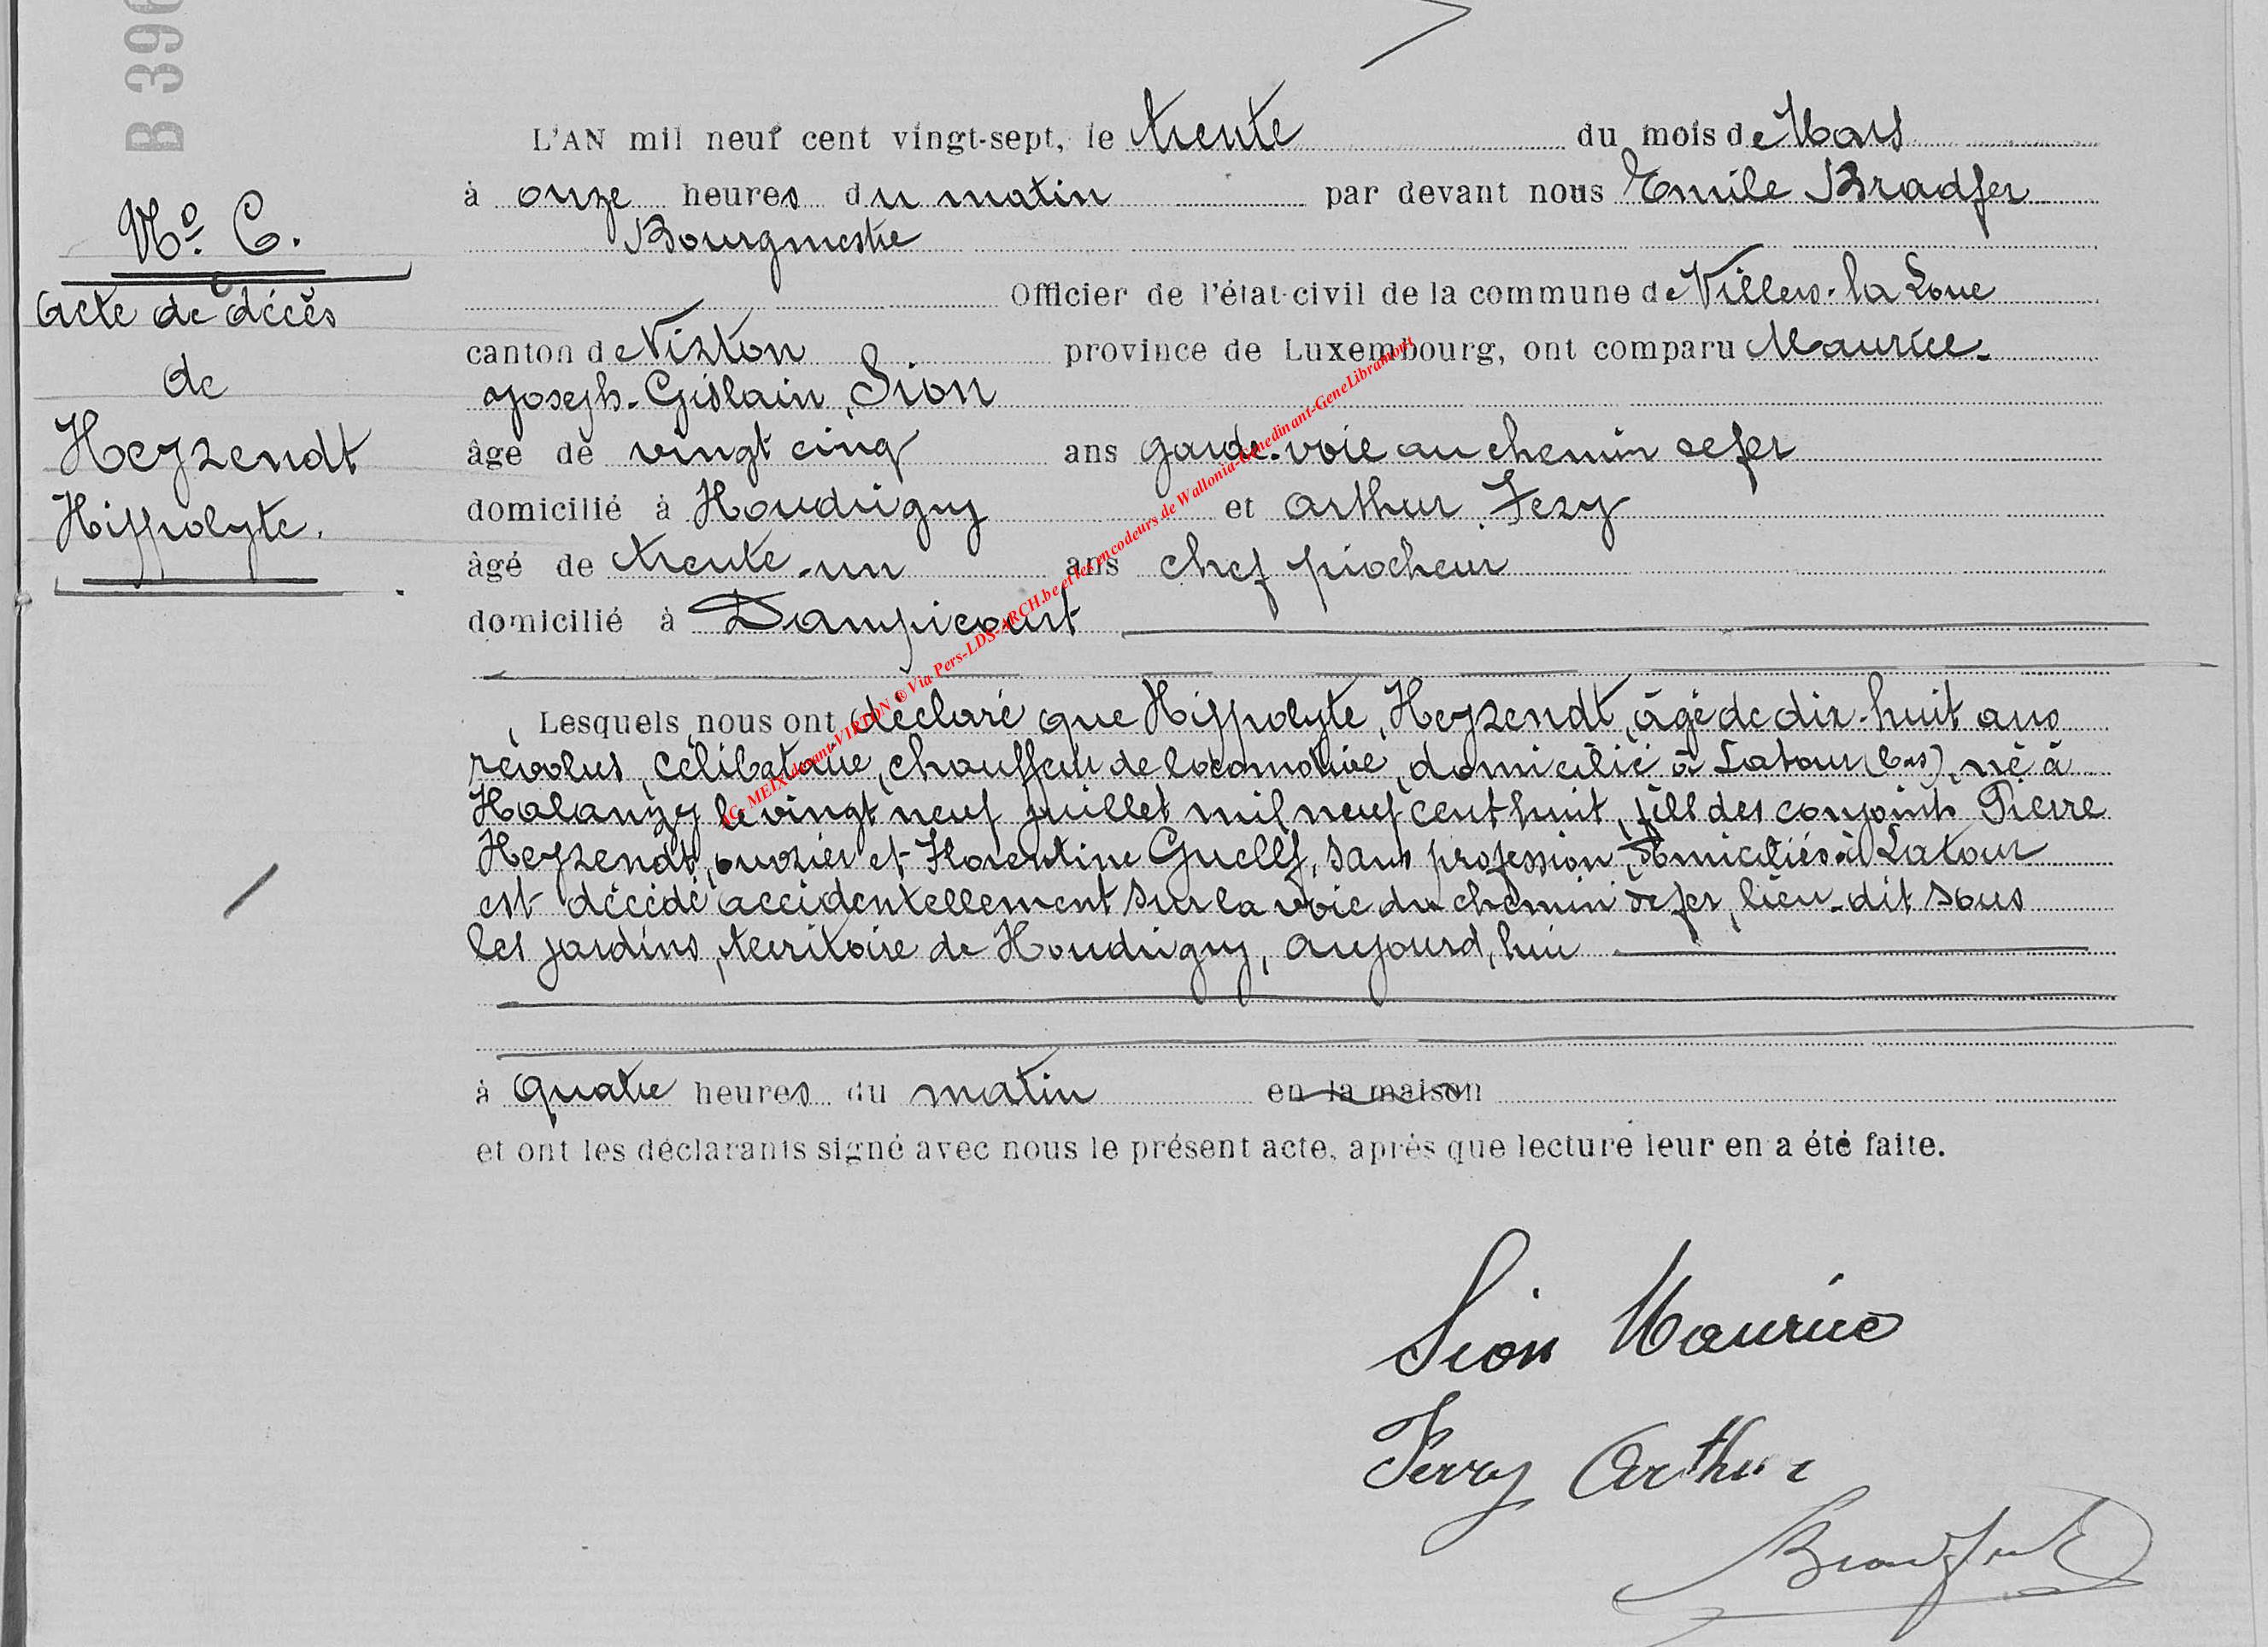 B 396
N° 6.
Acte de décès
de
Heyzendt
Hippolyte.
L'AN mil neuf cent vingt-sept, le trente du mois de Mars
à onze heures du matin par devant nous Emile Bradfer
Bourgmestre
Officier de l'état-civil de la commune de Villers-la Loue
canton de Virton province de Luxembourg, ont comparu Maurice-
Joseph-Gislain, Sion
âge de vingt cinq ans garde-voie au chemin de fer
domicilié à Houdrigny et Arthur, Fery
âgé de trente-un ans chef piocheur
domicilié à Dampicourt
Lesquels nous ont déclaré que Hippolyte, Heyzendt, âgé de dix-huit ans
révolus, célibataire, chauffeur de locomotive, domicilié à Latour (bas), né à
Halanzy le vingt neuf juillet mil neuf cent huit, fils des conjoints Pierre
Heyzendt, ouvrier et Florentine Guelff, sans profession, domiciliés à Latour
est décédé accidentellement sur la voie du chemin de fer, lieu-dit sous
les jardins, territoire de Houdrigny, aujourd,hui
à quatre heures du matin en la maison
et ont les déclarants signé avec nous le présent acte, après que lecture leur en a été faite.
Sion Maurice
Ferry Arthur
Bradfer
MEIX-devant-VIRTON ® Via Pers-LDS-ARCH.be et les encodeurs de Wallonia-Genedinant-GeneLibramont